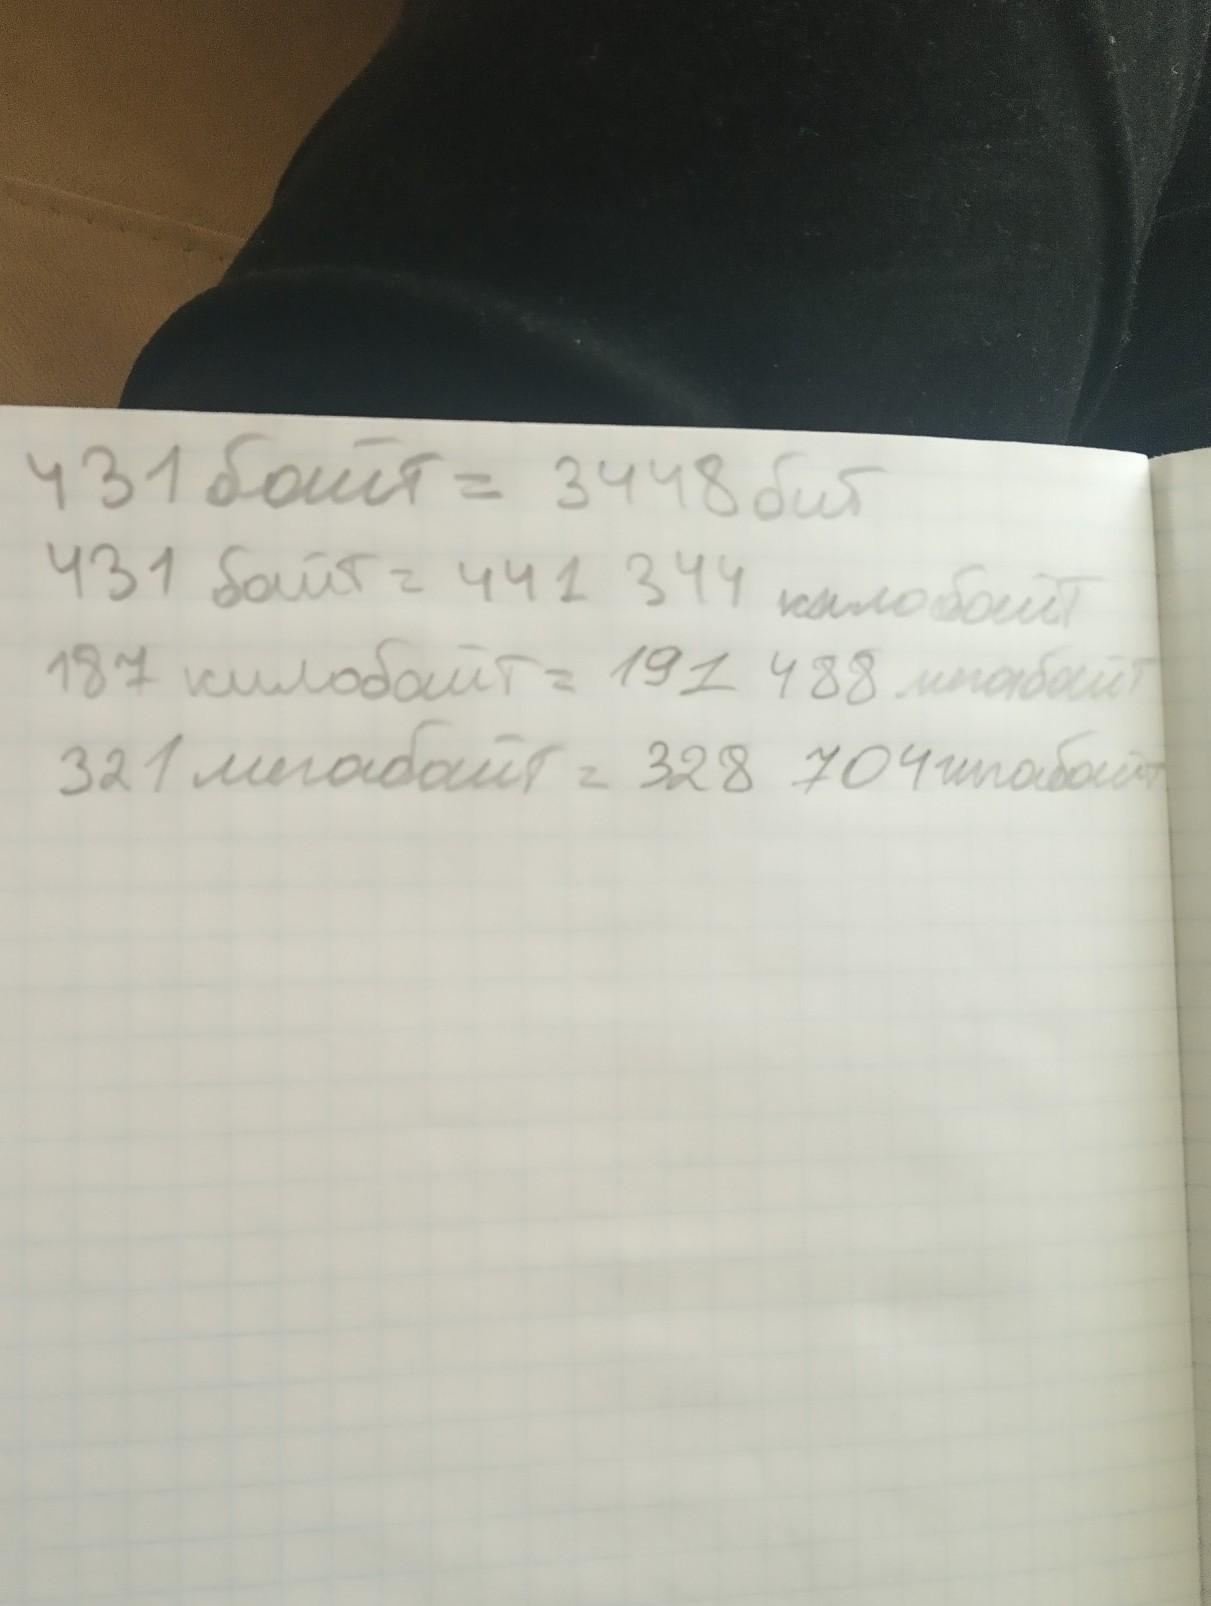 431 байт = 3448 бит
431 байт = 441 344 килобайт
187 килобайт = 191 488 мегабайт
321 мегабайт = 328 704 гигабайт